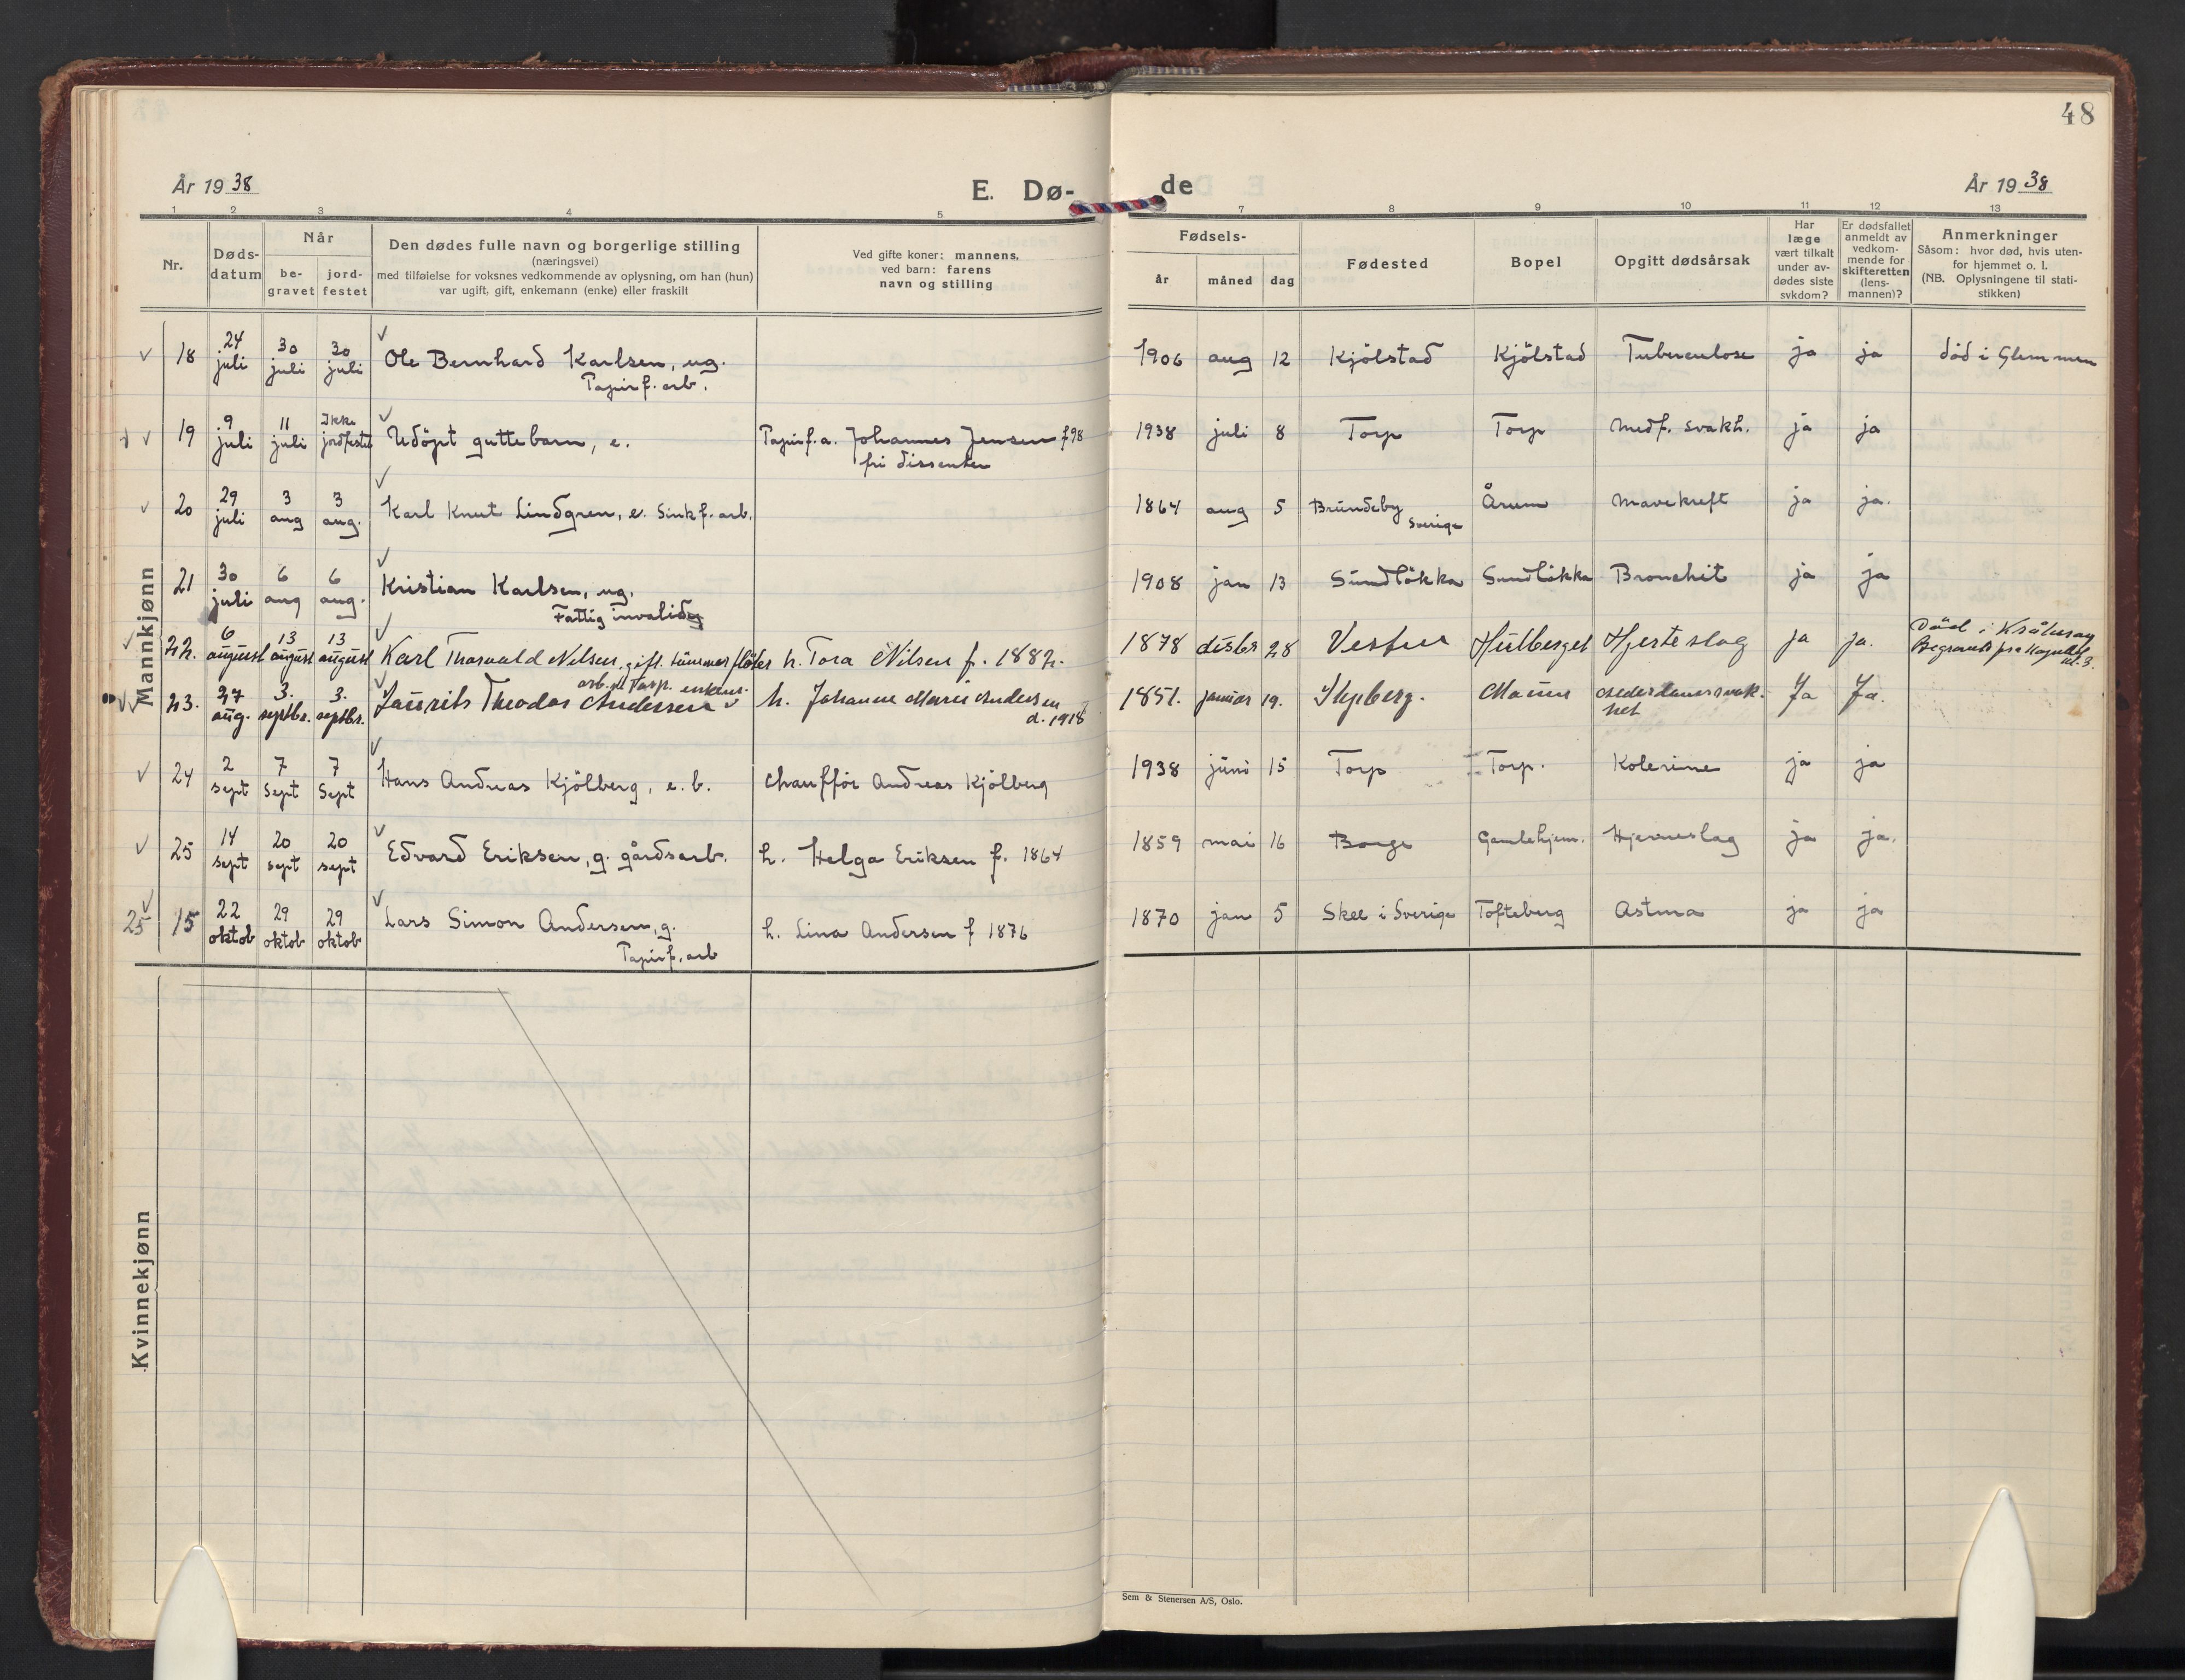 48
År 1938
E. Dø-
de
År 1938
1 2 3 4 5 7 8 9 10 11 12 13
Nr.
Døds-
datum
Når
be-
gravet
jord-
festet
Den dødes fulle navn og borgerlige stilling
(næringsvei)
med tilføielse for voksnes vedkommende av oplysning, om han (hun)
var ugift, gift, enkemann (enke) eller fraskilt
Ved gifte koner: mannens,
ved barn: farens
navn og stilling
Fødsels-
år måned dag
Fødested
Bopel
Opgitt dødsårsak
Har
læge
vært tilkalt
under av-
dødes siste
sykdom?
Er dødsfallet
anmeldt av
vedkom-
mende for
skifteretten
(lens-
mannen)?
Anmerkninger
Såsom: hvor død, hvis uten-
for hjemmet o. l.
(NB. Oplysningene til stati-
stikken)
Mannkjønn
18 24 juli 30 juli 30 juli Ole Bernhard Karlsen, ug. 1906 aug 12 Kjölstad Kjölstad Tuberculose ja ja död i Glemmen
Papirf. arb.
19 9 juli 11 juli Ikke jordfestet Udöpt guttebarn, e. Papirf. a. Johannes Jensen f 98 1938 juli 8 Torp Torp Medf. svakh. ja ja
fri dissenter
20 29 juli 3 aug 3 aug. Karl Knut Lindgren, e. Sinkf. arb. 1864 aug 5 Brundeby Sverige Årum Mavekreft ja ja.
21 30 juli 6 aug 6 aug. Kristian Karlsen, ug. 1908 jan 13 Sundlökka Sundlökka Bronchit ja ja
Fattig invalid
22. 6 august 13 august 13 august Karl Thorvald Nilsen, gift. tømmerfløter h. Tora Nilsen f. 1882. 1878 desbr 28 Hulberget Hjerteslag ja ja. Död i
Begravet fra Kapellet kl. 3.
23. 27 aug. 3. septbr. 3. septbr. Laurits Theodor Andersen h. Johanne Marie Andersen d. 1918 1851. januar 19. Moum Alderdomssvakhet Ja Ja.
24 2 sept 7 Sept 7 Sept Hans Andreas Kjölberg, e. b. Chaufför Andreas Kjölberg 1938 juni 15 Torp Torp. Kolerine ja ja
25 14 sept 20 sept 20 sept Edvard Eriksen, g. gårdsarb. h. Helga Eriksen f. 1864 1859 mai 16 Borge Gamlehjem. Hjerneslag ja ja.
25 15 22 oktob 29 oktob 29 oktob Lars Simon Andersen, g. h. Lina Andersen f 1876 1870 jan 5 Skee i Sverige Tofteberg Astma ja ja
Papirf. arb
Kvinnekjønn
Sem & Stenersen A/S, Oslo.